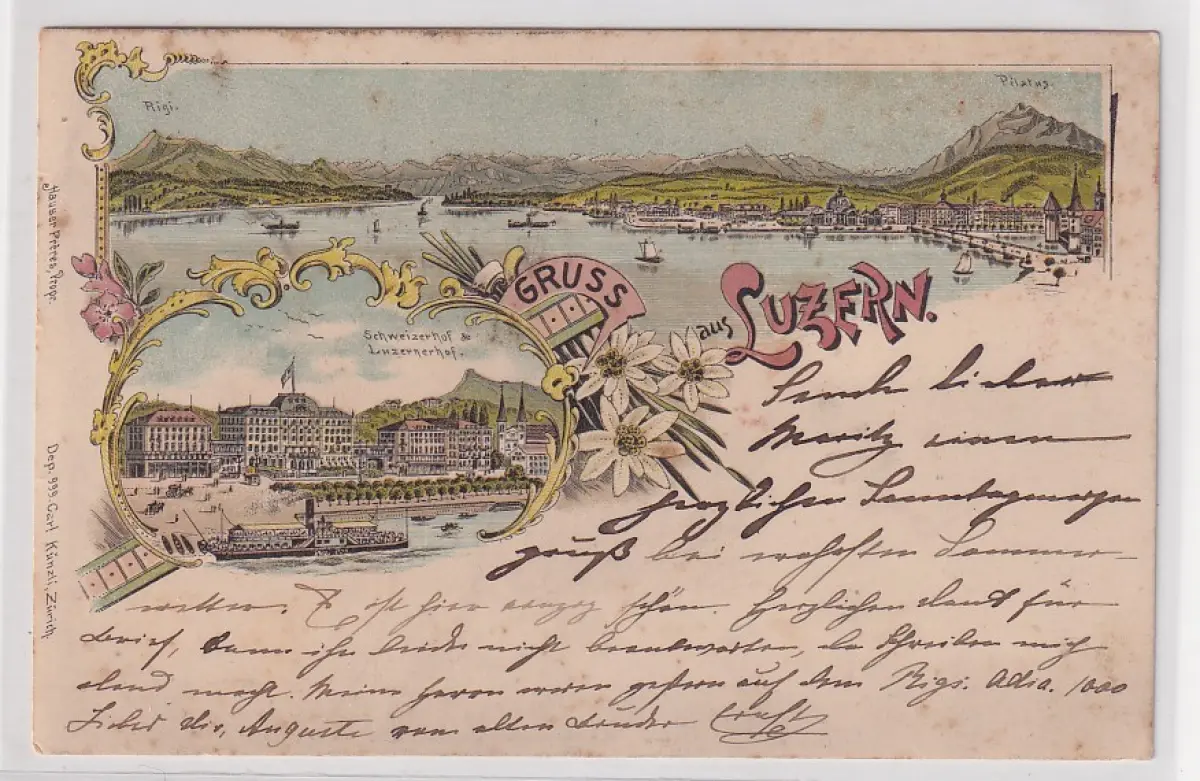 Rigi.
Pilatus.
GRUSS
aus LUZERN.
Schweizerhof &
Luzernerhof.
Häuser Frères, Propr.
Dep. 999. Carl Künzli, Zürich.
Sende lieber
Moritz einen
herzlichen Sonntagmorgen
gruß bei Sommer
wetter. ist hier schön. Herzlichen Dank für
Brief, kann ihn leider nicht beantworten, da Schreiben mich
elend macht. Meine Herren waren gestern auf dem Rigi. Adio. 1000
Auguste vom alten Bruder Ernst